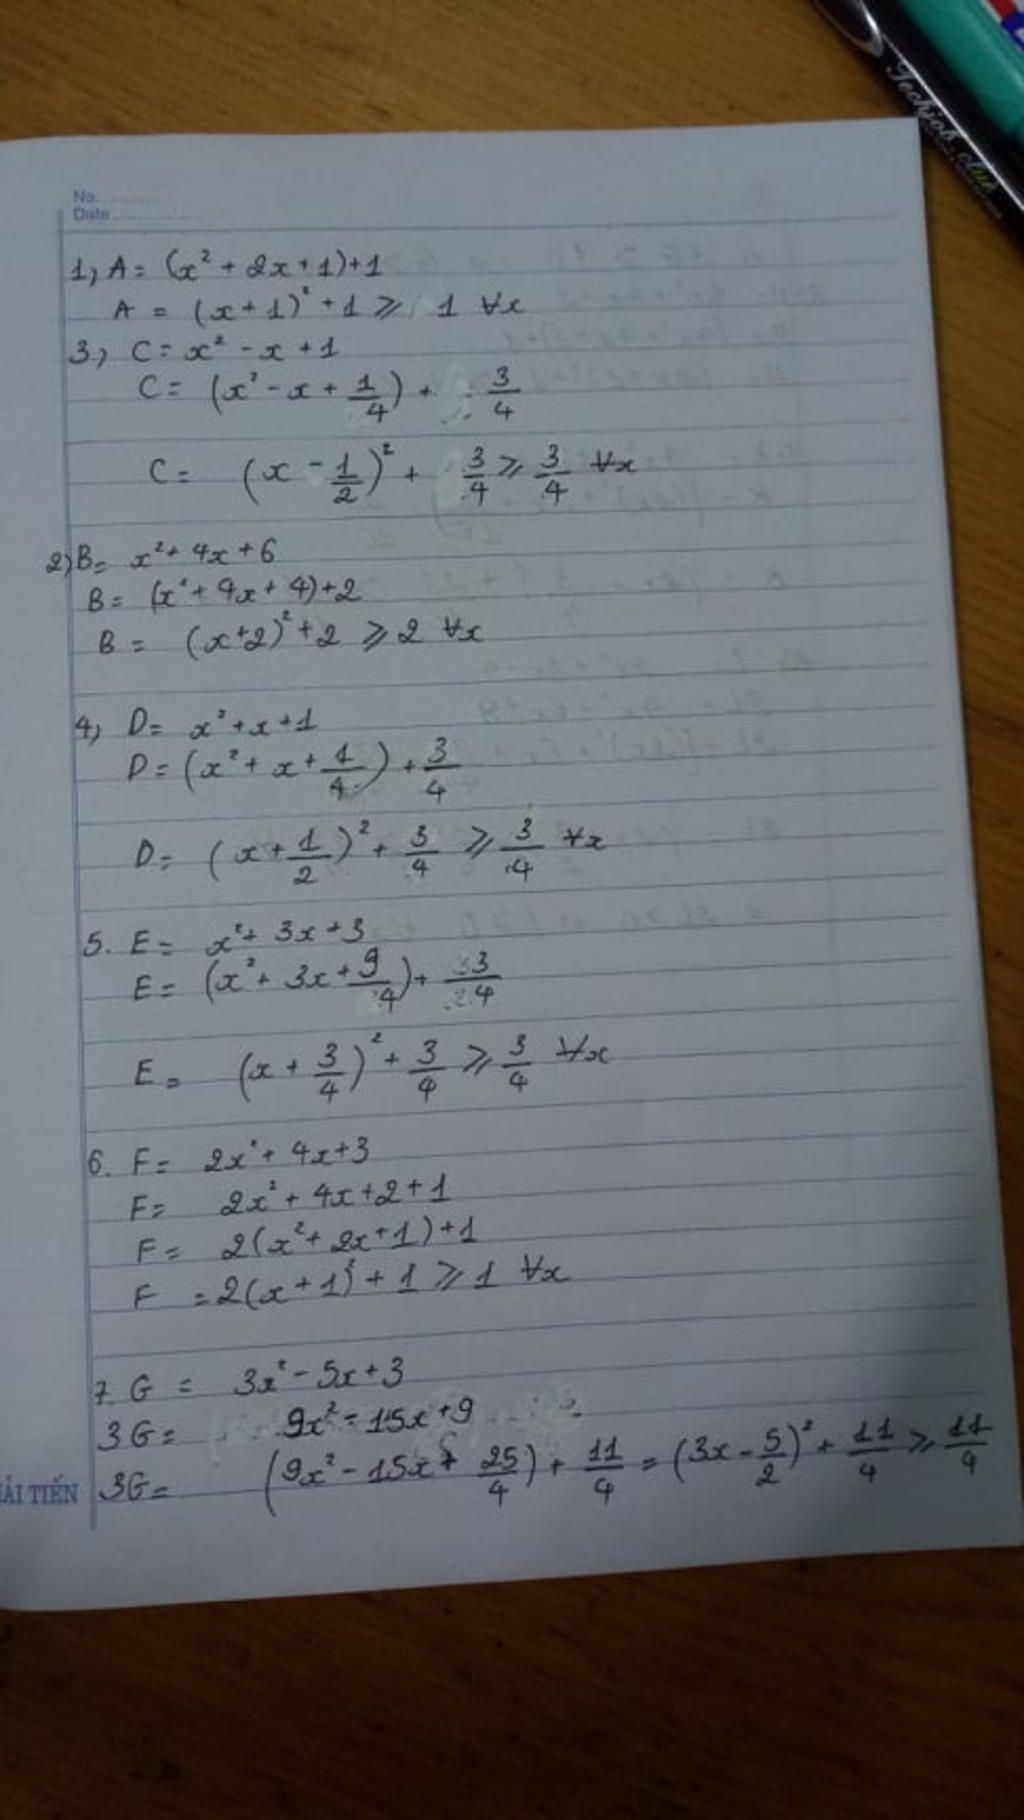 Techjob club
No.
Date
1, A = (x² + 2x + 1) + 1
A = (x + 1)² + 1 ⩾ 1 ∀x
3, C = x² - x + 1
C = (x² - x + 1/4) + 3/4
C = (x - 1/2)² + 3/4 ⩾ 3/4 ∀x
2) B = x² + 4x + 6
B = (x² + 4x + 4) + 2
B = (x + 2)² + 2 ⩾ 2 ∀x
4, D = x² + x + 1
D = (x² + x + 1/4) + 3/4
D = (x + 1/2)² + 3/4 ⩾ 3/4 ∀x
5. E = x² + 3x + 3
E = (x² + 3x + 9/4) + 3/4
E = (x + 3/4)² + 3/4 ⩾ 3/4 ∀x
6. F = 2x² + 4x + 3
F = 2x² + 4x + 2 + 1
F = 2(x² + 2x + 1) + 1
F = 2(x + 1)² + 1 ⩾ 1 ∀x
7. G = 3x² - 5x + 3
3G = 9x² - 15x + 9
3G = (9x² - 15x + 25/4) + 11/4 = (3x - 5/2)² + 11/4 ⩾ 11/4
ẢI TIẾN